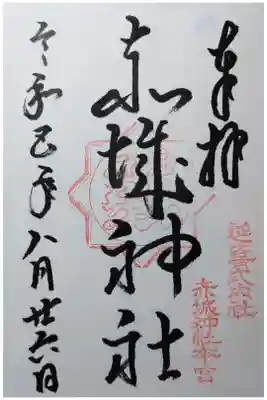 奉拝
延喜式内社
赤城神社本宮
赤城神社
令和巳年八月廿六日